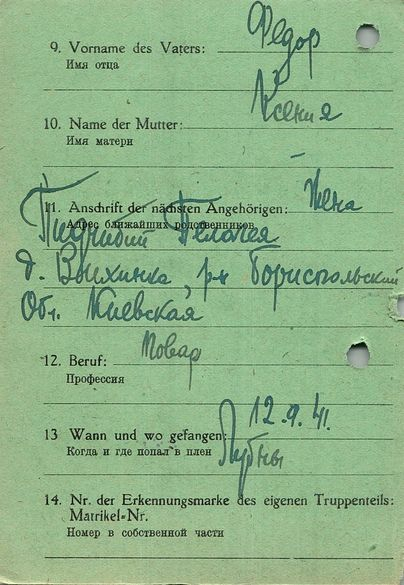 Федор
9. Vorname des Vaters:
Имя отца
Ксения
10. Name der Mutter:
Имя матери
11. Anschrift der nächsten Angehörigen: Жена
Адрес ближайших родственников
Пелагея
д. , р-н Бориспольский
Обл. Киевская
12. Beruf: Повар
Профессия
12.9.41.
13 Wann und wo gefangen:
Когда и где попал в плен
Лубны
14. Nr. der Erkennungsmarke des eigenen Truppenteils:
Matrikel-Nr.
Номер в собственной части